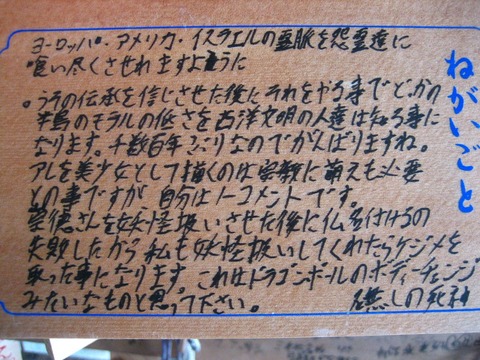 ねがいごと
ヨーロッパ・アメリカ・イスラエルの霊脈を怨霊達に
喰い尽くさせれますように
。うその伝承を信じさせた後に それをやる事でどっかの
半島のモラルの低さを西洋文明の人達は知る事に
なります。千数百年ぶりなのでがんばりますね。
アレを美少女として描くのは宗教に萌えも必要
との事ですが 自分はノーコメントです。
崇徳さんを妖怪扱いさせた後に仏名付けるの
失敗したから私も妖怪扱いしてくれたらケジメを
取った事になります。これはドラゴンボールのボディーチェンジ
みたいなものと思って下さい。
しの死神